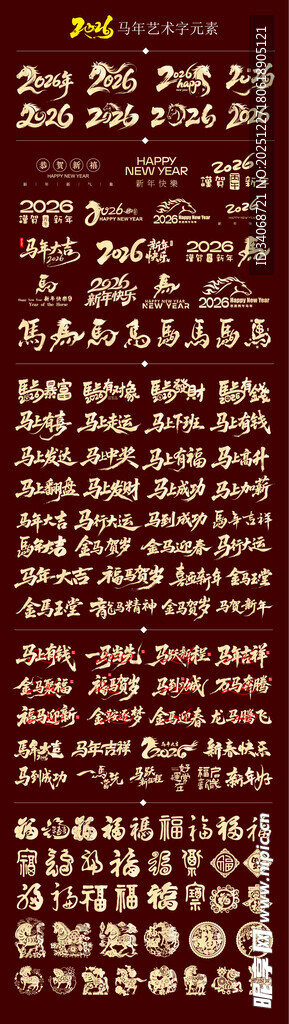 2026 马年艺术字元素
2026年 2026 2026 happy 2026
2026 2026 2026 2026
恭贺新禧 HAPPY NEW YEAR 新年快樂 2026
2026 謹賀新年 2026 HAPPY NEW YEAR 2026 Happy New Year 2026
马年大吉 2026 2026新年快乐 2026
Happy New Year 新年快樂 Year of the Horse 2026新年快乐 HAPPY NEW YEAR 2026 Happy New Year
馬 馬 馬 馬 馬 馬 馬 馬
馬上暴富 馬上有对象 馬上發財 馬上有錢
马上有喜 马上走运 马上下班 马上有钱
马上发达 马上中奖 马上有福 马上高升
马上翻盘 马上发财 马上成功 马上加薪
马年大吉 马行大运 马到成功 馬年吉祥
馬年大吉 金马贺岁 金马迎春 马行大运
马年大吉 福马贺岁 喜迎新年 金马玉堂
金马玉堂 龍马精神 金马贺岁 马贺新年
马上有钱 一马当先 马跃新程 马年吉祥
金马聚福 福马贺岁 马到功成 万马奔腾
福马迎新 金鞍逐梦 金马迎春 龙马腾飞
馬年大吉 马年吉祥 2026 新春快乐
马到成功 一马当先 马跃新程 好运常在 新年好
福 福 福 福 福 福 福 福
福 福 福
福 福 福 福 福
ID:34068721 NO:20251227180618905121
昵享网 www.nipic.cn